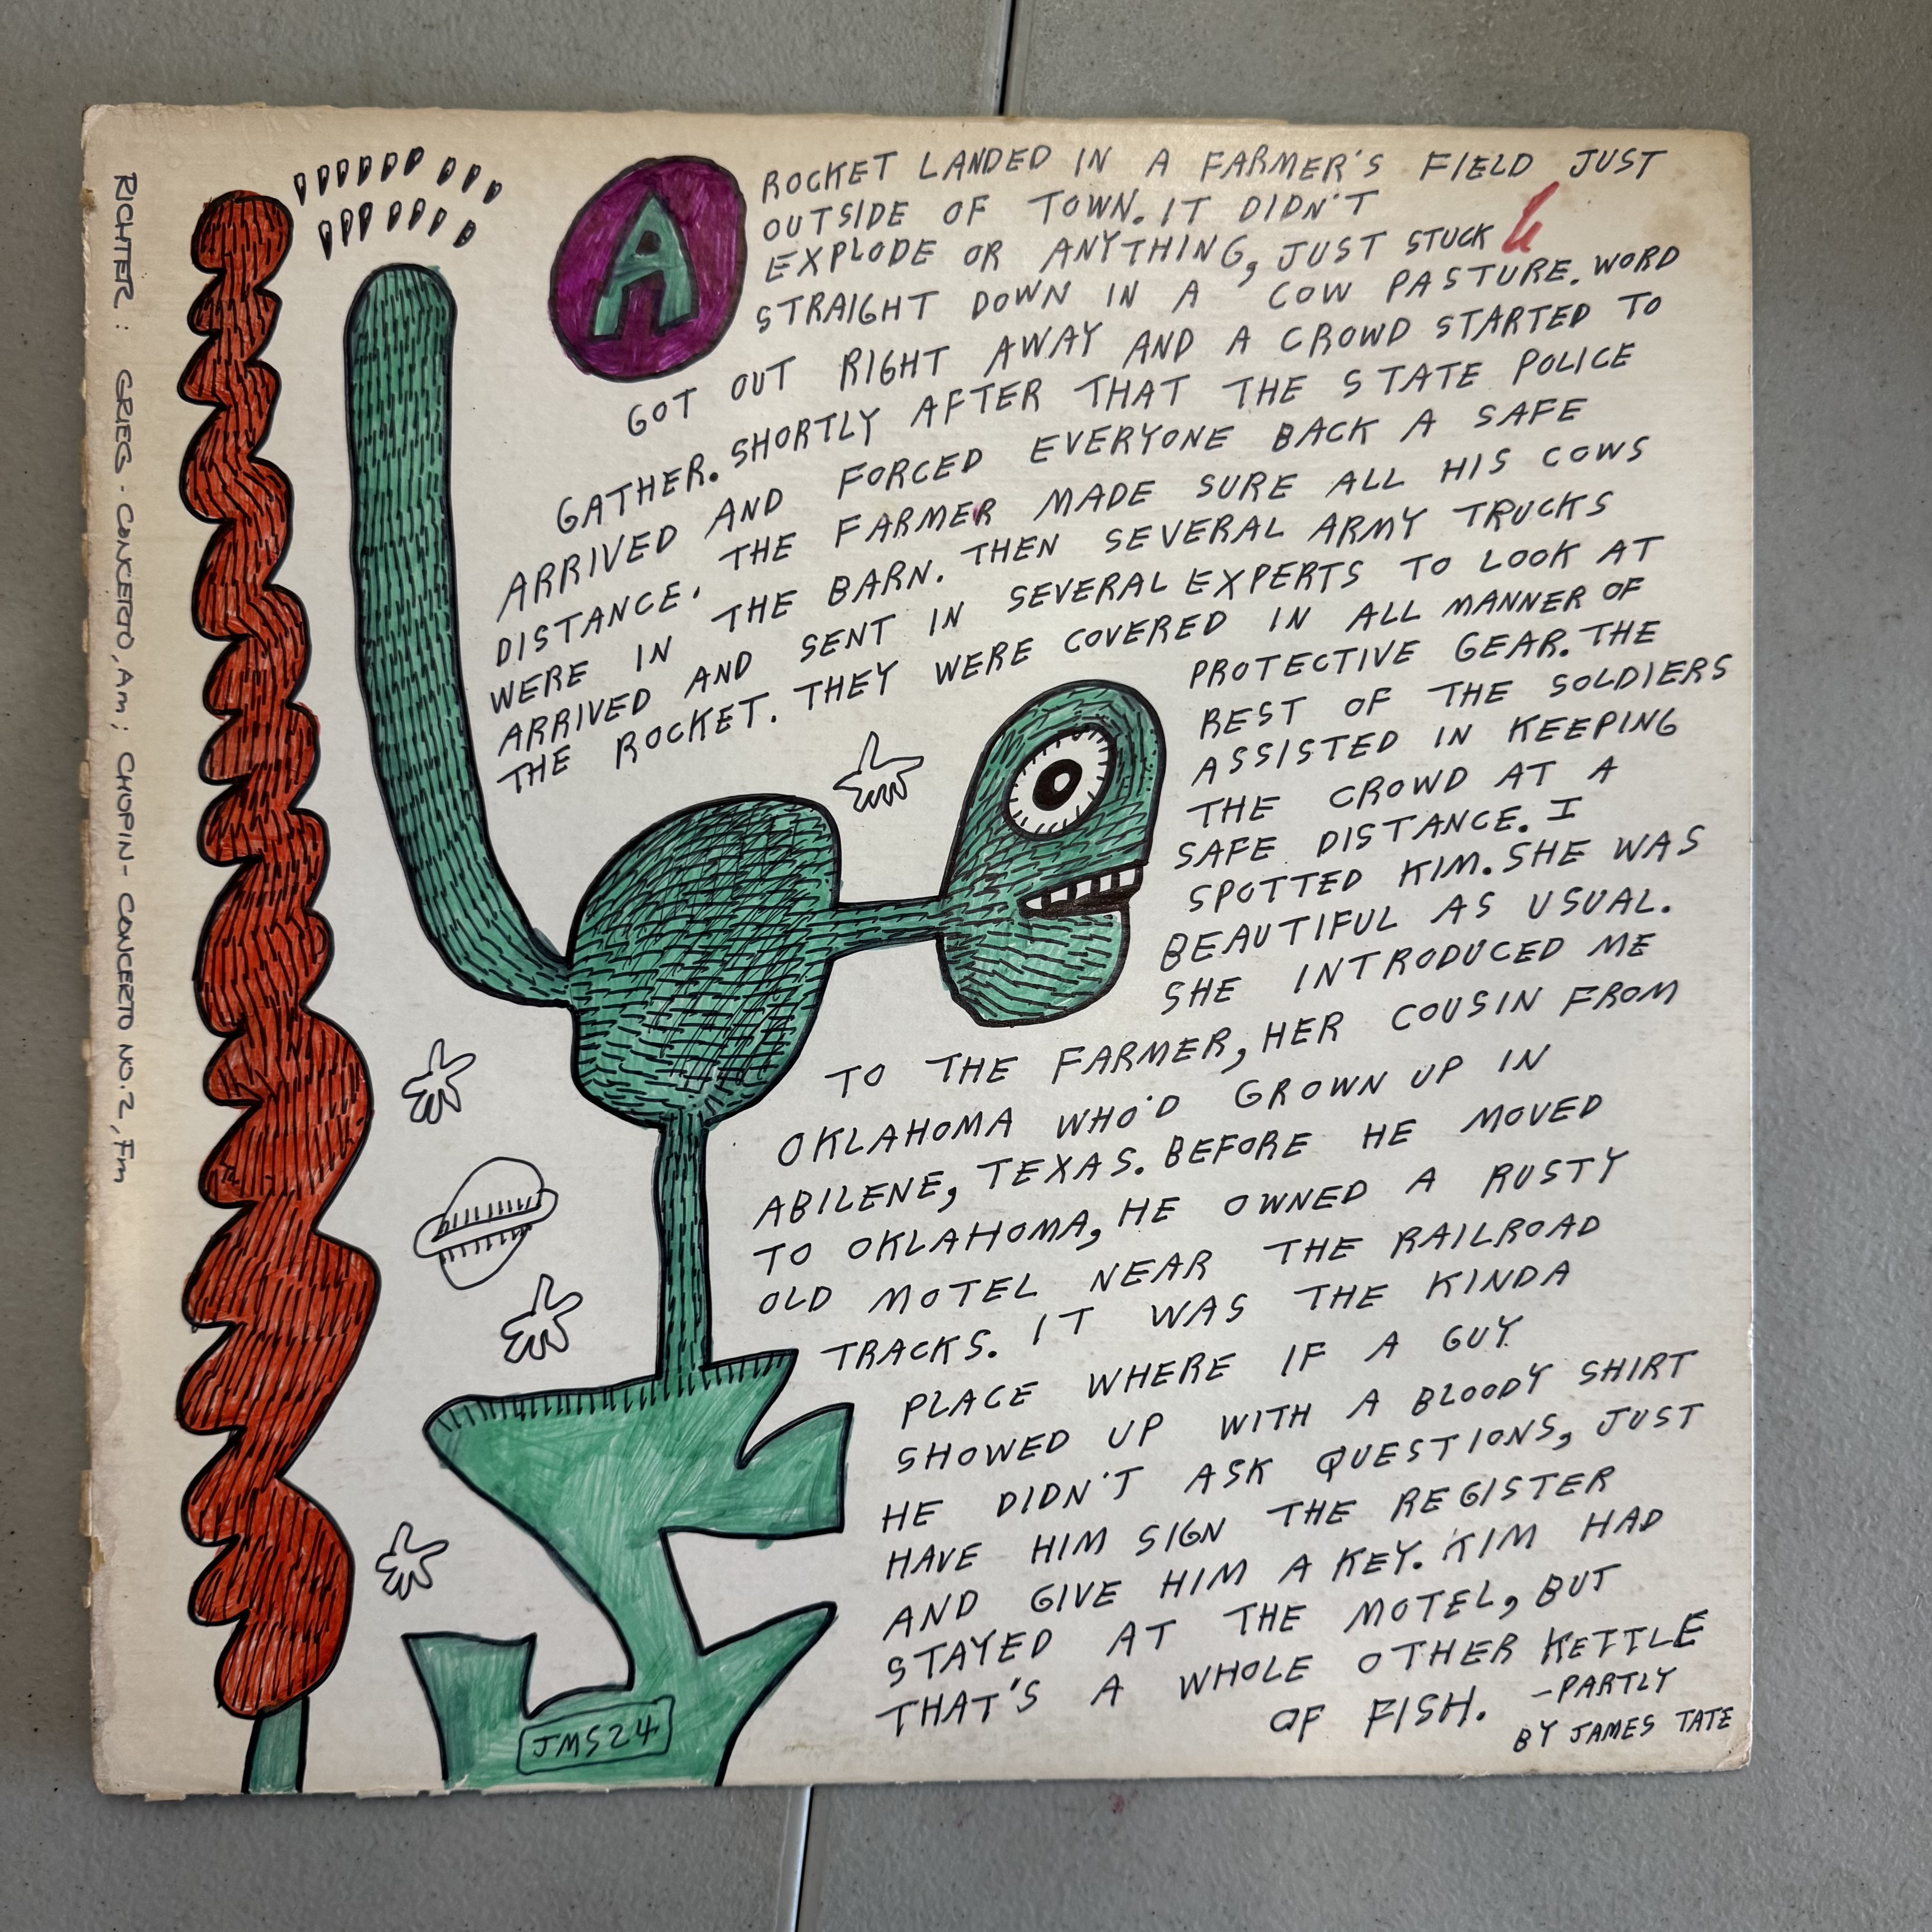 A ROCKET LANDED IN A FARMER'S FIELD JUST
OUTSIDE OF TOWN. IT DIDN'T
EXPLODE OR ANYTHING, JUST STUCK
STRAIGHT DOWN IN A COW PASTURE. WORD
GOT OUT RIGHT AWAY AND A CROWD STARTED TO
GATHER. SHORTLY AFTER THAT THE STATE POLICE
ARRIVED AND FORCED EVERYONE BACK A SAFE
DISTANCE. THE FARMER MADE SURE ALL HIS COWS
WERE IN THE BARN. THEN SEVERAL ARMY TRUCKS
ARRIVED AND SENT IN SEVERAL EXPERTS TO LOOK AT
THE ROCKET. THEY WERE COVERED IN ALL MANNER OF
PROTECTIVE GEAR. THE
REST OF THE SOLDIERS
ASSISTED IN KEEPING
THE CROWD AT A
SAFE DISTANCE. I
SPOTTED KIM. SHE WAS
BEAUTIFUL AS USUAL.
SHE INTRODUCED ME
TO THE FARMER, HER COUSIN FROM
OKLAHOMA WHO'D GROWN UP IN
ABILENE, TEXAS. BEFORE HE MOVED
TO OKLAHOMA, HE OWNED A RUSTY
OLD MOTEL NEAR THE RAILROAD
TRACKS. IT WAS THE KINDA
PLACE WHERE IF A GUY
SHOWED UP WITH A BLOODY SHIRT
HE DIDN'T ASK QUESTIONS, JUST
HAVE HIM SIGN THE REGISTER
AND GIVE HIM A KEY. KIM HAD
STAYED AT THE MOTEL, BUT
THAT'S A WHOLE OTHER KETTLE
OF FISH. -PARTLY
BY JAMES TATE
JMS24
RICHTER: GRIEG - CONCERTO, Am; CHOPIN - CONCERTO NO. 2, Fm